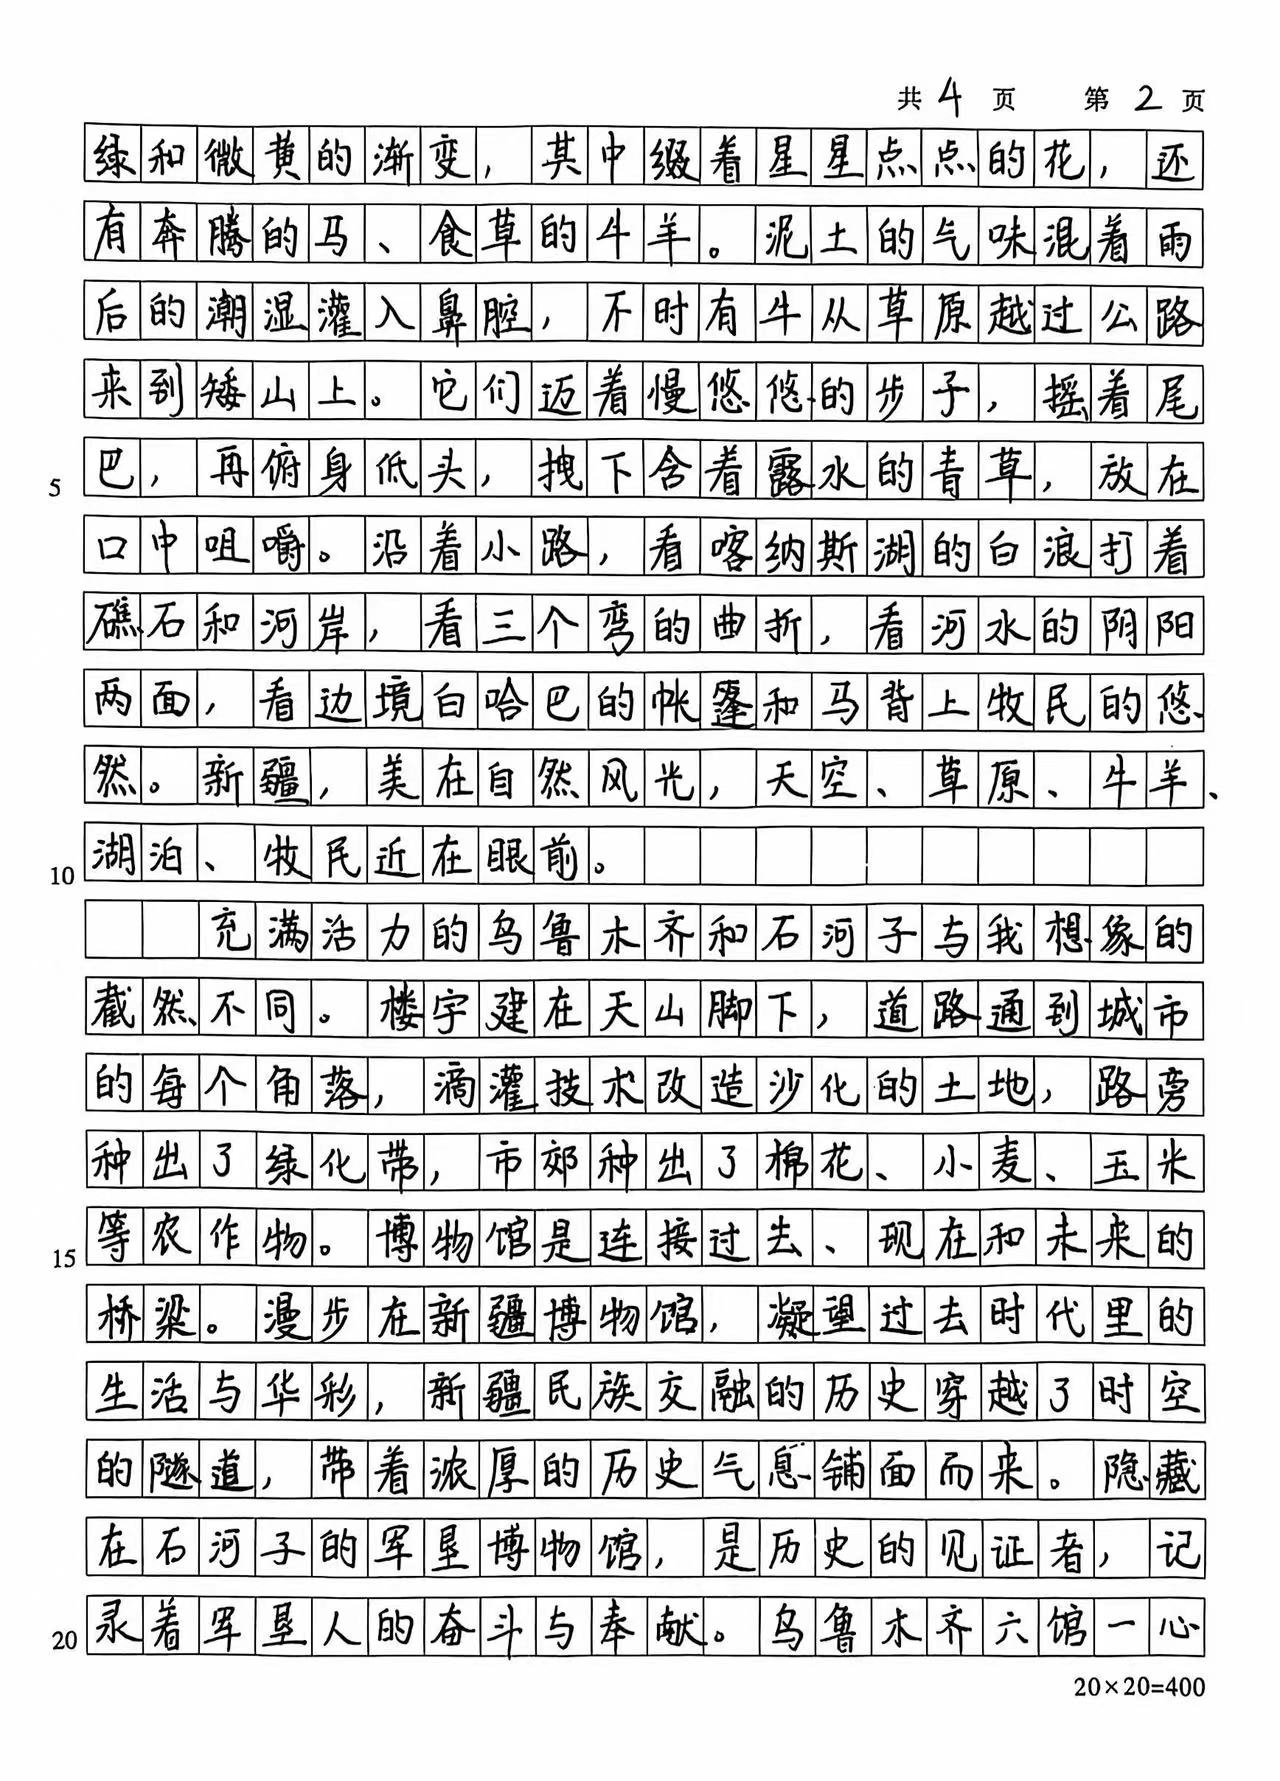 共 4 页 第 2 页
绿和微黄的渐变，其中缀着星星点点的花，还
有奔腾的马、食草的牛羊。泥土的气味混着雨
后的潮湿灌入鼻腔，不时有牛从草原越过公路
来到矮山上。它们迈着慢悠悠的步子，摇着尾
巴，再俯身低头，拽下含着露水的青草，放在
5
口中咀嚼。沿着小路，看喀纳斯湖的白浪打着
礁石和河岸，看三个弯的曲折，看河水的阴阳
两面，看边境白哈巴的帐篷和马背上牧民的悠
然。新疆，美在自然风光，天空、草原、牛羊、
湖泊、牧民近在眼前。
10
充满活力的乌鲁木齐和石河子与我想象的
截然不同。楼宇建在天山脚下，道路通到城市
的每个角落，滴灌技术改造沙化的土地，路旁
种出了绿化带，市郊种出了棉花、小麦、玉米
等农作物。博物馆是连接过去、现在和未来的
15
桥梁。漫步在新疆博物馆，凝望过去时代里的
生活与华彩，新疆民族交融的历史穿越了时空
的隧道，带着浓厚的历史气息铺面而来。隐藏
在石河子的军垦博物馆，是历史的见证者，记
录着军垦人的奋斗与奉献。乌鲁木齐六馆一心
20
20×20=400